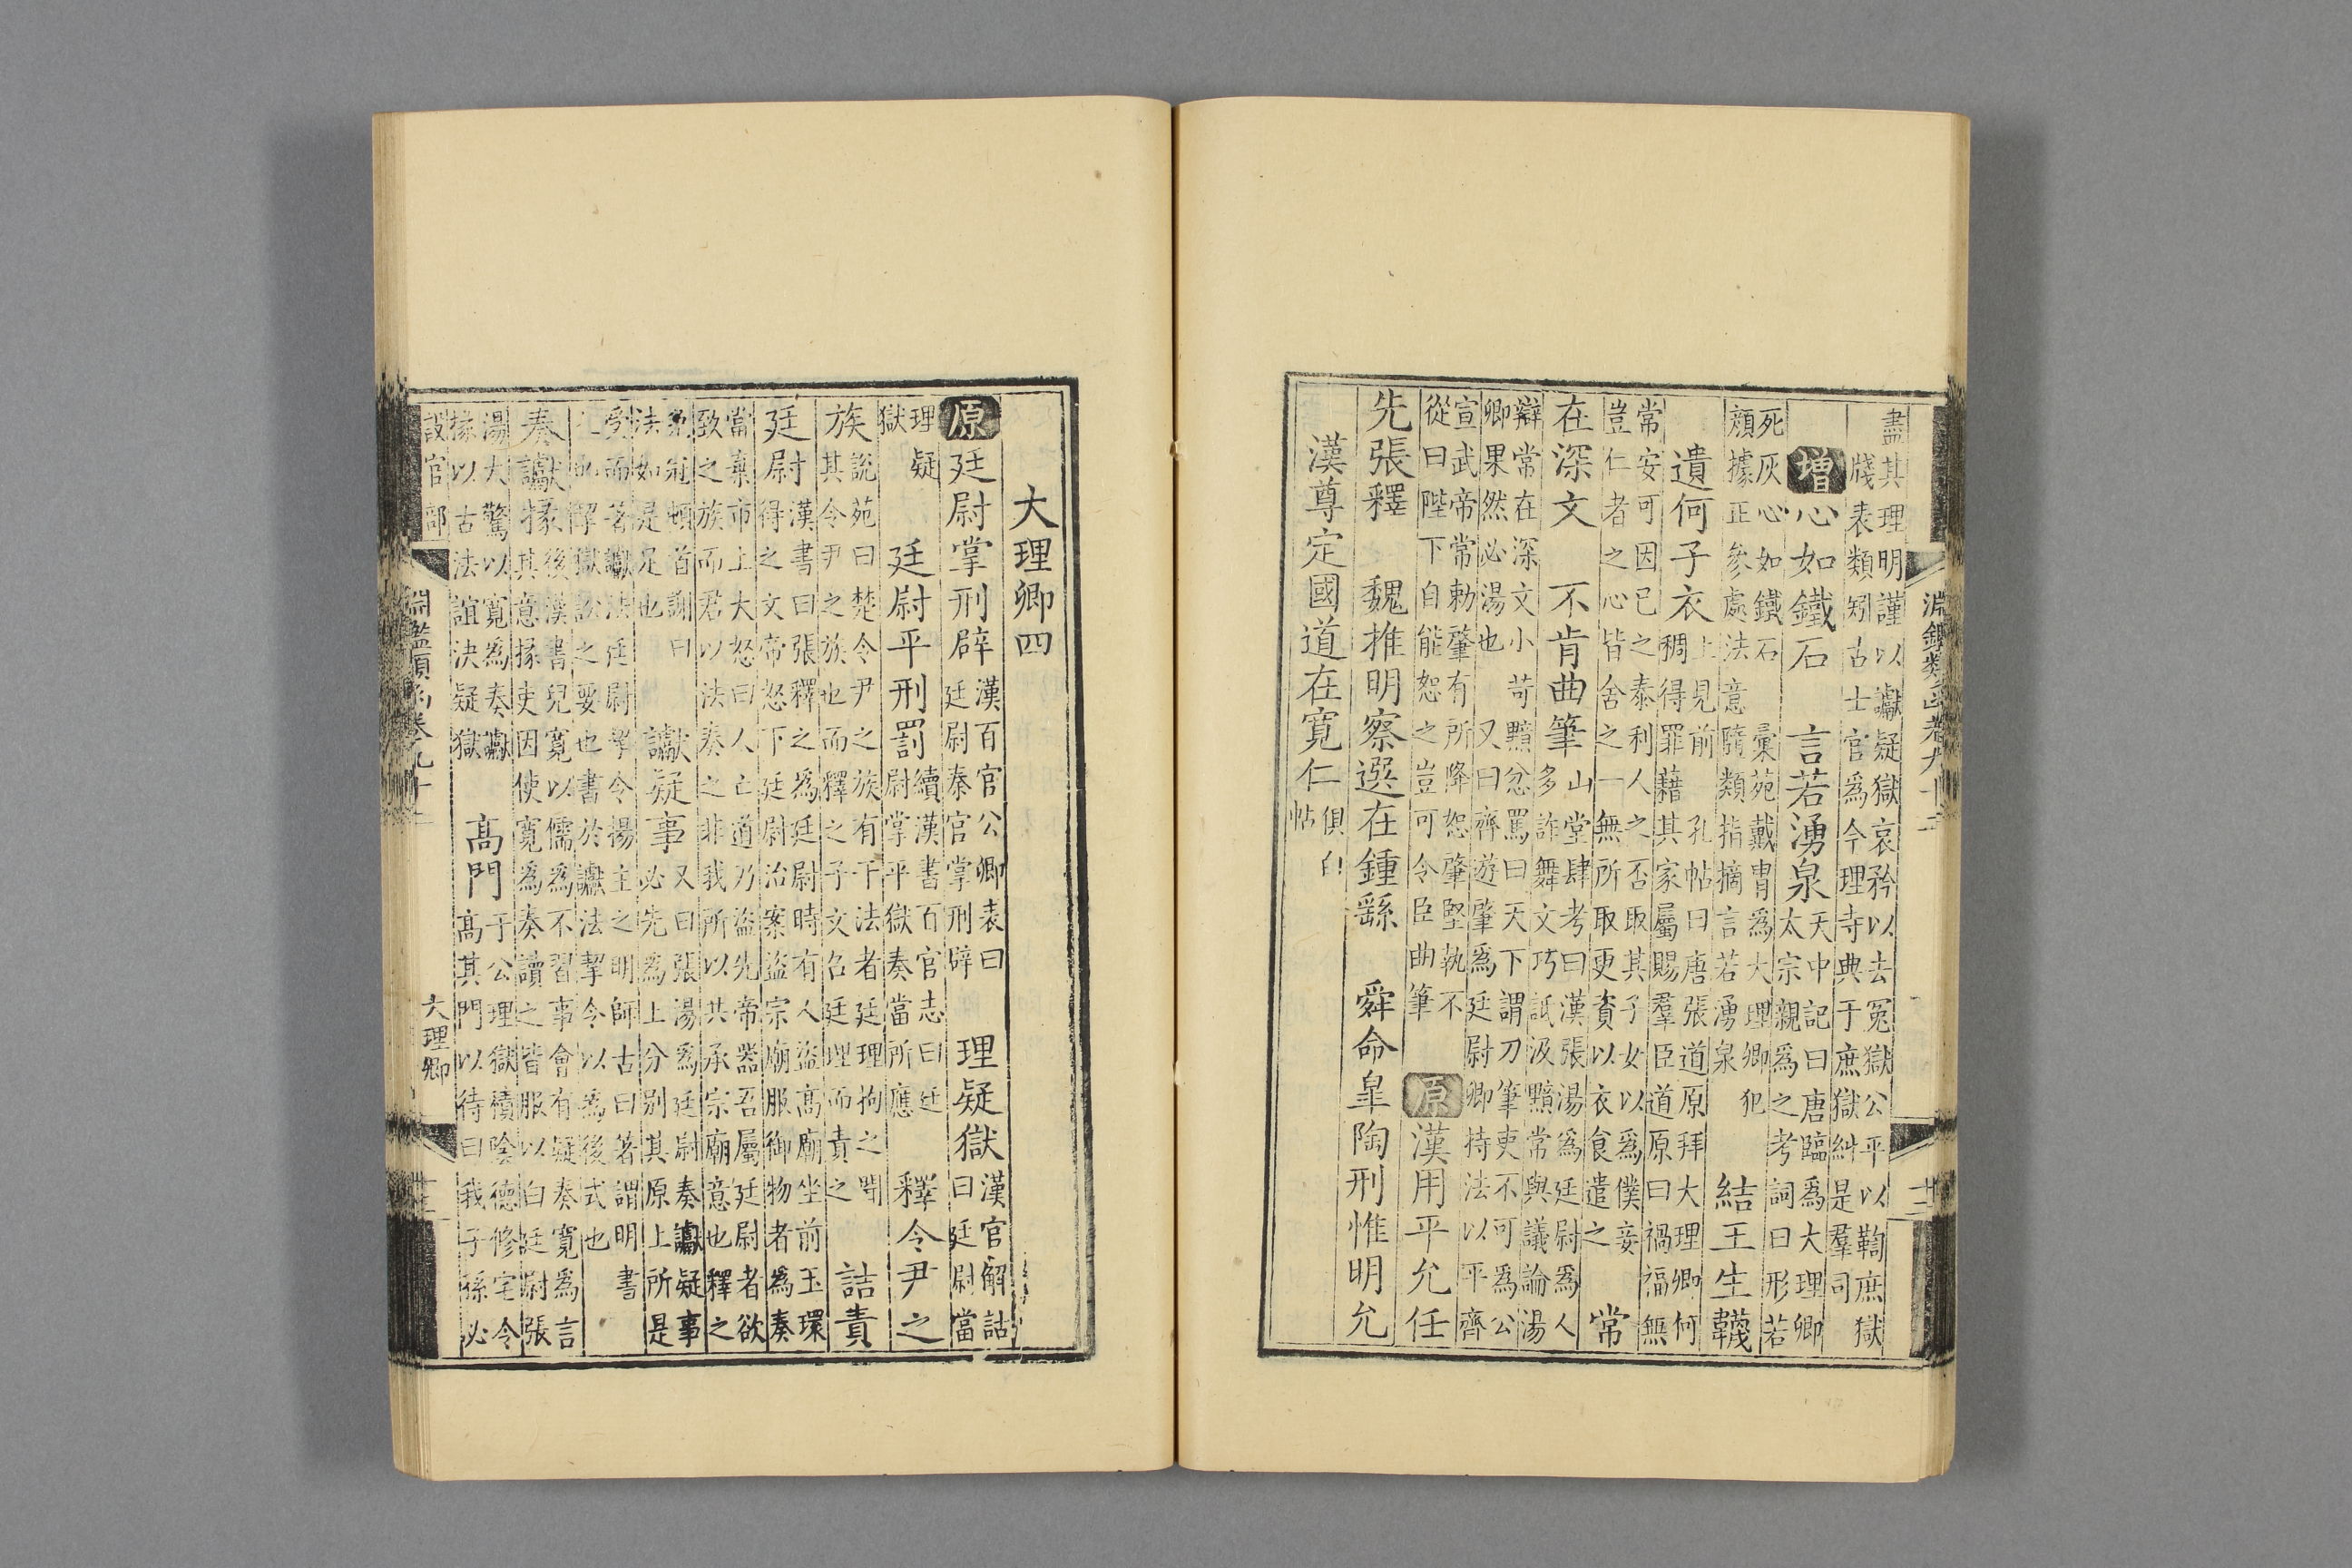 淵鑑類函卷九十二
十二
盡其理明謹以讞疑獄哀矜以去冤獄公平以鞫庶獄
牋表類矧古士官為今理寺典于庶獄糾是羣司
增心如鐵石
天中記曰唐臨為大理卿
太宗親為之考詞曰形若
死灰心如鐵石
言若湧泉
彙苑戴冑為大理卿犯
顏據正參處法意隨類指摘言若湧泉
結王生韈
上見前
遺何子衣
孔帖曰唐張道原拜大理卿何
稠得罪藉其家屬賜羣臣道原曰禍福無
常安可因己之泰利人之否取其子女以為僕妾
豈仁者之心皆舍之一無所取更資以衣食遣之
常
在深文
山堂肆考曰漢張湯為廷尉為人
多詐舞文巧詆汲黯常與議論湯
辯常在深文小苛黯忿罵曰天下謂刀筆吏不可為公
卿果然必湯也
不肯曲筆
又曰齊遊肇為廷尉卿持法以平齊
宣武帝常勅肇有所降恕肇堅執不
從曰陛下自能恕之豈可令臣曲筆
原漢用平允任
先張釋 魏推明察選在鍾繇 舜命皐陶刑惟明允
漢尊定國道在寬仁
俱白
帖
大理卿四
原廷尉掌刑辟
漢百官公卿表曰
廷尉秦官掌刑辟
理疑獄
漢官解詁
曰廷尉當
理疑
獄
廷尉平刑罰
續漢書百官志曰廷
尉掌平獄奏當所應
釋令尹之
族
說苑曰楚令尹之族有下法者廷理拘之聞
其令尹之族也而釋之子文召廷理而責之
詰責
廷尉
漢書曰張釋之為廷尉時有人盜高廟坐前玉環
得之文帝怒下廷尉治案盜宗廟服御物者為奏
當棄市上大怒曰人亡道乃盜先帝器吾屬廷尉者欲
致之族而君以法奏之非我所以共承宗廟意也釋之
免冠頓首謝曰
法如是足也
讞疑事
又曰張湯為廷尉奏讞疑事
必先為上分別其原上所是
受而著讞法廷尉挈令揚主之明師古曰著謂明書
之也挈獄訟之要也書於讞法挈令以為後式也
奏讞掾
後漢書兒寬以儒為不習事會有疑奏寬為言
其意掾吏因使寬為奏讀之皆服以白廷尉張
湯大驚以寬為奏讞
掾以古法誼決疑獄
高門
于公理獄積陰德修宅令
高其門以待曰我子孫必
設官部
淵鑑類函卷九十二
大理卿
十三